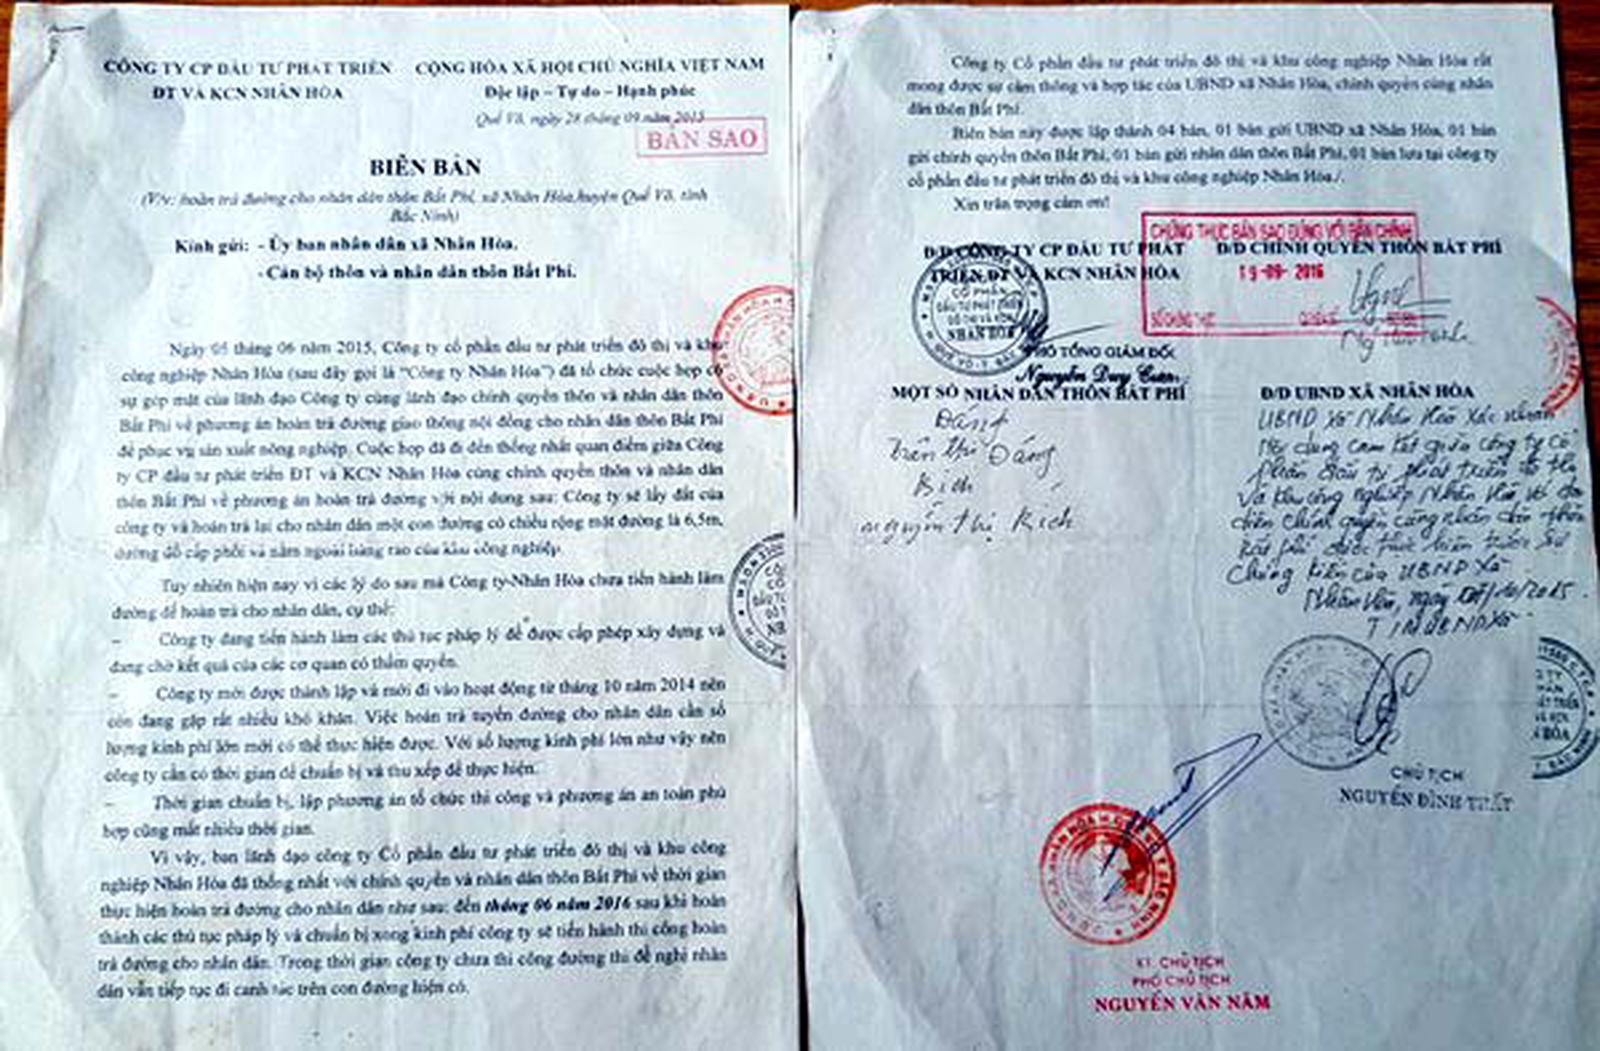 CÔNG TY CP ĐẦU TƯ PHÁT TRIỂN
ĐT VÀ KCN NHÂN HÒA
CỘNG HÒA XÃ HỘI CHỦ NGHĨA VIỆT NAM
Độc lập – Tự do – Hạnh phúc
Quế Võ, ngày 28 tháng 09 năm 2015
BẢN SAO
BIÊN BẢN
(V/v: hoàn trả đường cho nhân dân thôn Bất Phí, xã Nhân Hòa, huyện Quế Võ, tỉnh
Bắc Ninh)
Kính gửi: - Ủy ban nhân dân xã Nhân Hòa.
- Cán bộ thôn và nhân dân thôn Bất Phí.
Ngày 05 tháng 06 năm 2015, Công ty cổ phần đầu tư phát triển đô thị và khu
công nghiệp Nhân Hòa (sau đây gọi là "Công ty Nhân Hòa") đã tổ chức cuộc họp có
sự góp mặt của lãnh đạo Công ty cùng lãnh đạo chính quyền thôn và nhân dân thôn
Bất Phí về phương án hoàn trả đường giao thông nội đồng cho nhân dân thôn Bất Phí
để phục vụ sản xuất nông nghiệp. Cuộc họp đã đi đến thống nhất quan điểm giữa Công
ty CP đầu tư phát triển ĐT và KCN Nhân Hòa cùng chính quyền thôn và nhân dân
thôn Bất Phí về phương án hoàn trả đường với nội dung sau: Công ty sẽ lấy đất của
công ty và hoàn trả lại cho nhân dân một con đường có chiều rộng mặt đường là 6,5m,
đường đổ cấp phối và nằm ngoài hàng rào của khu công nghiệp.
Tuy nhiên hiện nay vì các lý do sau mà Công ty Nhân Hòa chưa tiến hành làm
đường để hoàn trả cho nhân dân, cụ thể:
– Công ty đang tiến hành làm các thủ tục pháp lý để được cấp phép xây dựng và
đang chờ kết quả của các cơ quan có thẩm quyền.
– Công ty mới được thành lập và mới đi vào hoạt động từ tháng 10 năm 2014 nên
còn đang gặp rất nhiều khó khăn. Việc hoàn trả tuyến đường cho nhân dân cần số
lượng kinh phí lớn mới có thể thực hiện được. Với số lượng kinh phí lớn như vậy nên
công ty cần có thời gian để chuẩn bị và thu xếp để thực hiện.
– Thời gian chuẩn bị, lập phương án tổ chức thi công và phương án an toàn phù
hợp cũng mất nhiều thời gian.
Vì vậy, ban lãnh đạo công ty Cổ phần đầu tư phát triển đô thị và khu công
nghiệp Nhân Hòa đã thống nhất với chính quyền và nhân dân thôn Bất Phí về thời gian
thực hiện hoàn trả đường cho nhân dân như sau: đến tháng 06 năm 2016 sau khi hoàn
thành các thủ tục pháp lý và chuẩn bị xong kinh phí công ty sẽ tiến hành thi công hoàn
trả đường cho nhân dân. Trong thời gian công ty chưa thi công đường thì đề nghị nhân
dân vẫn tiếp tục đi canh tác trên con đường hiện có.
Công ty Cổ phần đầu tư phát triển đô thị và khu công nghiệp Nhân Hòa rất
mong được sự cảm thông và hợp tác của UBND xã Nhân Hòa, chính quyền cùng nhân
dân thôn Bất Phí.
Biên bản này được lập thành 04 bản, 01 bản gửi UBND xã Nhân Hòa, 01 bản
gửi chính quyền thôn Bất Phí, 01 bản gửi nhân dân thôn Bất Phí, 01 bản lưu tại công ty
cổ phần đầu tư phát triển đô thị và khu công nghiệp Nhân Hòa./.
Xin trân trọng cảm ơn!
CHỨNG THỰC BẢN SAO ĐÚNG VỚI BẢN CHÍNH
19-09-2016
SỐ CHỨNG THỰC QUYỂN SỐ
Đ/D CÔNG TY CP ĐẦU TƯ PHÁT
TRIỂN ĐT VÀ KCN NHÂN HÒA
CỔ PHẦN
ĐẦU TƯ PHÁT TRIỂN
ĐÔ THỊ VÀ KCN
NHÂN HÒA
PHÓ TỔNG GIÁM ĐỐC
Nguyễn Duy
Đ/D CHÍNH QUYỀN THÔN BẤT PHÍ
MỘT SỐ NHÂN DÂN THÔN BẤT PHÍ
Đáng
Trần thị Đáng
Bích
nguyễn thị Bích
Đ/D UBND XÃ NHÂN HÒA
UBND xã Nhân Hòa xác nhận
Nội dung cam kết giữa công ty Cổ
phần đầu tư phát triển đô thị
và khu công nghiệp Nhân Hòa với đại
diện chính quyền cùng nhân dân thôn
Bất phí được thực hiện trước sự
chứng kiến của UBND xã
Nhân Hòa, ngày 07/10/2015.
TM UBND xã
CHỦ TỊCH
NGUYỄN ĐÌNH THẤT
KT. CHỦ TỊCH
PHÓ CHỦ TỊCH
NGUYỄN VĂN NĂM